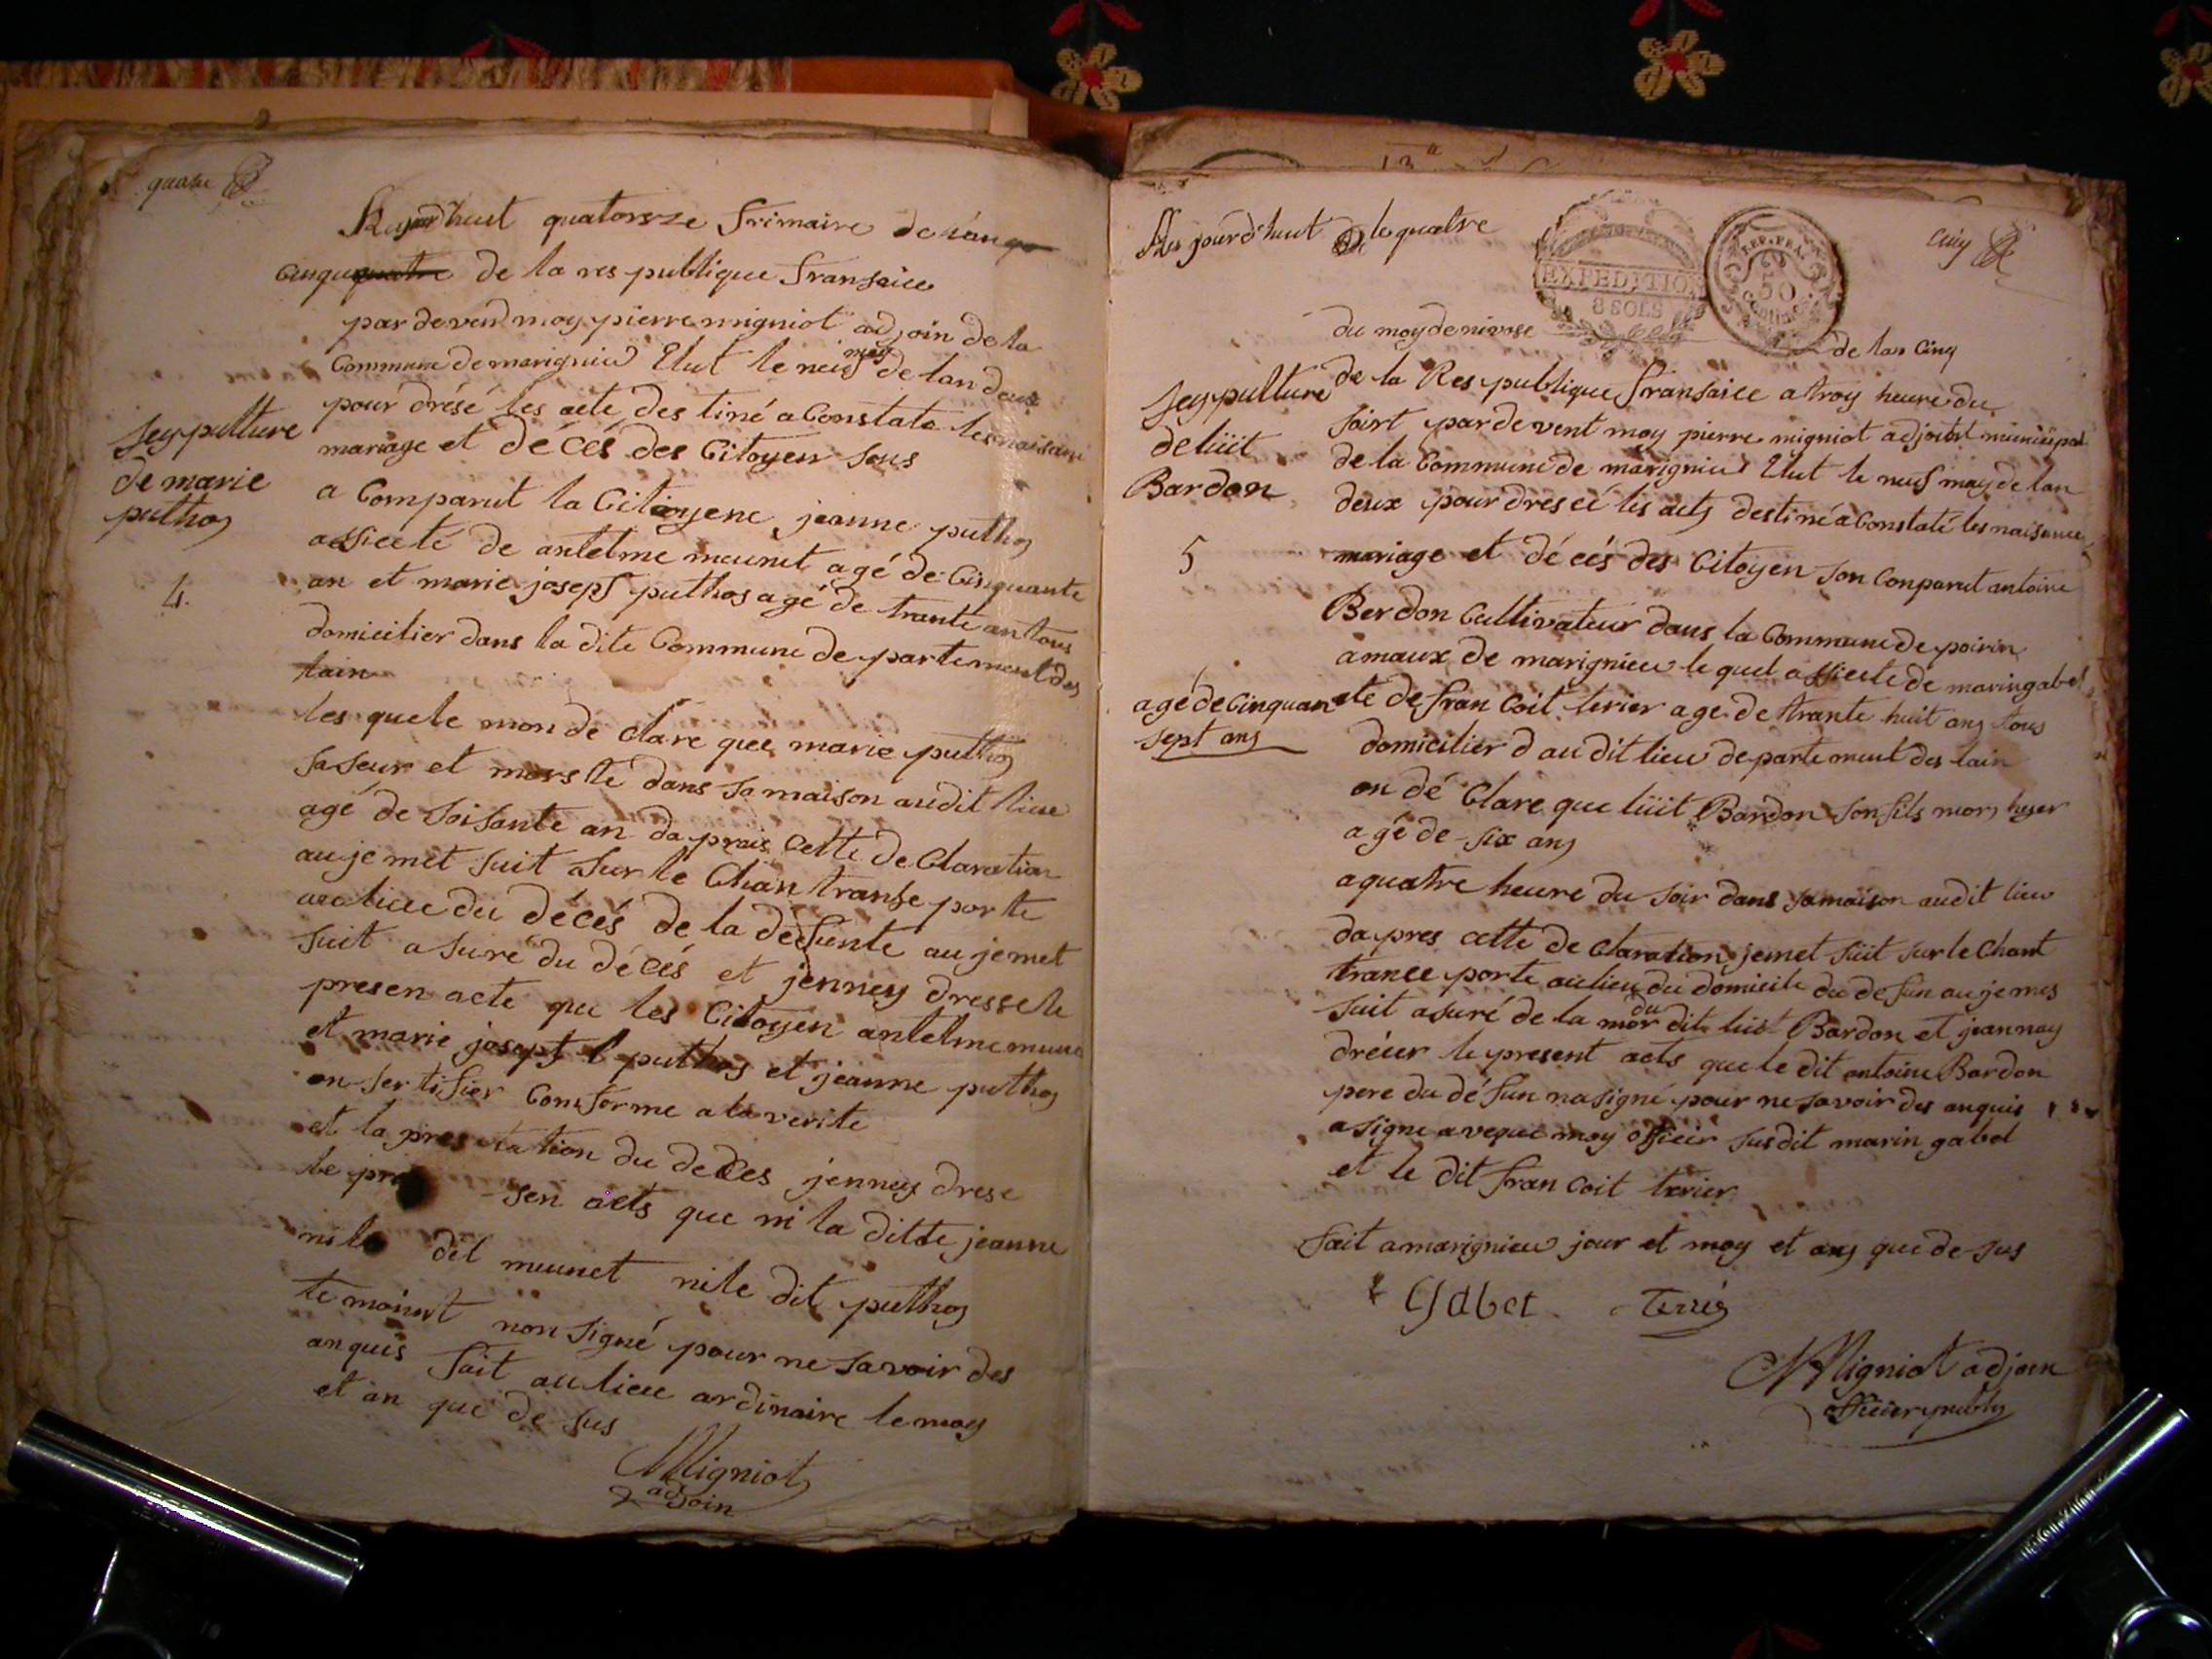 quatre
Aujourdhuit quatorsze frimaire de lan
cinq quatre de la res publique fransaice
par devend moy pierre migniot adjoin de la
Commune de marignieu Elut le neuf may de lan deux
pour drésé les acte des tiné a Constate les naisance
mariage et décés des Citoyen sous
seypulture
de marie
puthos
4.
a Comparut la Citoyene jeanne puthos
assiecté de antelme meunet agé de Cinquante
an et marie joseph puthos agé de trante an tous
domicilier dans la dite Commune de partement des
lain
les quele mon dé Clare que marie puthos
sa seur et morste dans sa maison audit lieue
agé de soisante an da prais Cette de Claration
au je met suit sur le Chan transe porte
au lieue du décés de la défunte au je met
suit a suré du décés et jenney dresse le
presen acte que les Citoyen antelme meune
et marie josept puthos et jeanne puthos
on ser tifier Conforme a la verite
et la pres ta tion du dedes jenney drese
le pre sen acts que ni la ditte jeanne
ni le dit meunet ni le dit puthos
te moint non signé pour ne savoir des
an quis fait au lieu ordinaire le moy
et an que de sus
Migniot
adjoin
Aujourd'huit le quatre
EXPEDITION
8 SOLS
REP. FRA.
50
Centimes
Cinq
du moy de nivose
de lan Cinq
de la Res publique fransaice a troy heure du
soirt par de vent moy pierre migniot adjoint municipal
de la Commune de marignieu Elut le neuf may de lan
deux pour dres cé les acts destiné a Constaté les naisance
mariage et décés des Citoyen son Conparut antoine
seypulture
de lüit
Bardon
5
Berdon Cultivateur dans la Commune de poirin
amaux de marignieu le quel assiecte de marin gabet
agé de Cinquante
sept ans
de fran Coit terier age de trante huit ans tous
domicilier d au dit lieu de parte ment des lain
on dé Clare que lüit Bardon son fils mors hyer
agé de six ans
a quatre heure du soir dans sa maison audit lieu
da pres cette de Claration je met süit sur le Chant
trance porte au lieu du domicile du de fun au je mes
suit asuré de la mor du dit luit Bardon et jeannay
dréeer le present acts que le dit antoine Bardon
pere du dé fun na signé pour ne savoir des anquis
a signe a veque moy officier susdit marin gabet
et le dit fran Coit terier
fait a marignieu jour et moy et ans que de sus
Gabet Terrié
Migniot adjoin
officier public